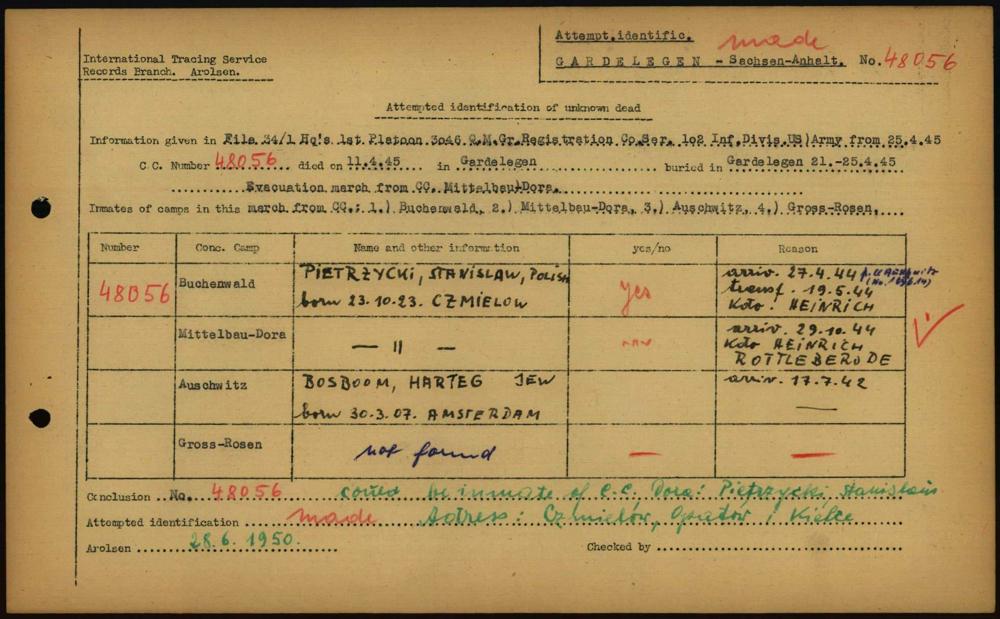 International Tracing Service
Records Branch. Arolsen.
Attempt.identific. made
GARDELEGEN - Sachsen-Anhalt. No. 48056
Attempted identification of unknown dead
Information given in File 34/1 Hq's 1st Platoon 3046 Q.M.Gr.Registration Co.Ser. 102 Inf.Divis.US)Army from 25.4.45
C.C. Number 48056 died on 11.4.45 in Gardelegen buried in Gardelegen 21.-25.4.45
Evacuation march from CC. Mittelbau-Dora.
Inmates of camps in this march from CC.: 1.) Buchenwald, 2.) Mittelbau-Dora, 3.) Auschwitz, 4.) Gross-Rosen.
Number Conc. Camp Name and other information yes/no Reason
48056 Buchenwald PIETRZYCKI, STANISLAW, POLISH born 23.10.23. CZMIELOW yes arriv. 27.4.44 transf. 19.5.44 Kdo: HEINRICH
Mittelbau-Dora — 11 — arriv. 29.10.44 Kdo HEINRICH ROTTLEBERODE
Auschwitz BOSBOOM, HARTEG JEW born 30.3.07. AMSTERDAM arriv. 17.7.42 —
Gross-Rosen not found — —
Conclusion No. 48056 could be inmate of C.C. Dora: Pietrzycki Stanislaus
Attempted identification made Adress: Czmielów, Opatów i Kielce
Arolsen 28.6.1950. Checked by